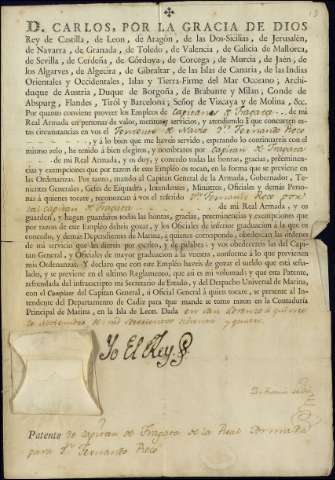 D. CARLOS, POR LA GRACIA DE DIOS
Rey de Castilla, de Leon, de Aragón, de las Dos-Sicilias, de Jerusalén,
de Navarra, de Granada, de Toledo, de Valencia, de Galicia de Mallorca,
de Sevilla, de Cerdeña, de Córdova, de Corcega, de Murcia, de Jaén, de
los Algarves, de Algecira, de Gibraltar, de las Islas de Canaria, de las Indias
Orientales y Occidentales, Islas y Tierra-Firme del Mar Oceano, Archi-
duque de Austria, Duque de Borgoña, de Brabante y Milan, Conde de
Abspurg, Flandes, Tiról y Barcelona, Señor de Vizcaya y de Molina, &c.
Por quanto conviene proveer los Empleos de Capitanes de Fragata de
mi Real Armada en personas de valor, meritos y servicios, y atendiendo à que concurren es-
tas circunstancias en vos el Teniente de Navio Dn. Fernando Reco
y à lo bien que me haveis servido, esperando lo continuaréis con el
mismo zelo, he tenido à bien elegiros, y nombraros por Capitan de Fragata
de mi Real Armada, y os doy, y concedo todas las honras, gracias, preeminen-
cias y exempciones que por razon de este Empleo os tocan, en la forma que se previene en
las Ordenanzas. Por tanto, mando al Capitan General de la Armada, Gobernador, Te-
nientes Generales, Gefes de Esquadra, Intendentes, Ministros, Oficiales y demás Perso-
nas à quienes tocare, os reconozcan à vos el referido Dn. Fernando Reco por
tal Capitan de Fragata de mi Real Armada, y os
guarden, y hagan guardaros todas las honras, gracias, preeminencias y exempciones que
por razon de este Empleo debeis gozar, y los Oficiales de inferior graduacion à la que os
concedo, y demás Dependientes de Marina, à quienes corresponda, obedezcan las ordenes
de mi servicio que les diereis por escrito, y de palabra; y vos obedecereis las del Capi-
tan General, y Oficiales de mayor graduacion à la vuestra, conforme à lo que previenen
mis Ordenanzas. Y declaro que con este Empleo haveis de gozar el sueldo que está seña-
lado, y se previene en el ultimo Reglamento, que asi es mi voluntad; y que esta Patente,
refrendada del infraescripto mi Secretario de Estado, y del Despacho Universal de Marina,
con el Cumplase del Capitan General, ù Oficial General à quien tocare, se presente al In-
tendente del Departamento de Cadiz para que mande se tome razon en la Contaduría
Principal de Marina, en la Isla de Leon. Dada en San Lorenzo à quince
de Noviembre de mil setecientos
Yo El Rey
Patente de Capitan de Fragata de la Real Armada
para Dn. Fernando Reco